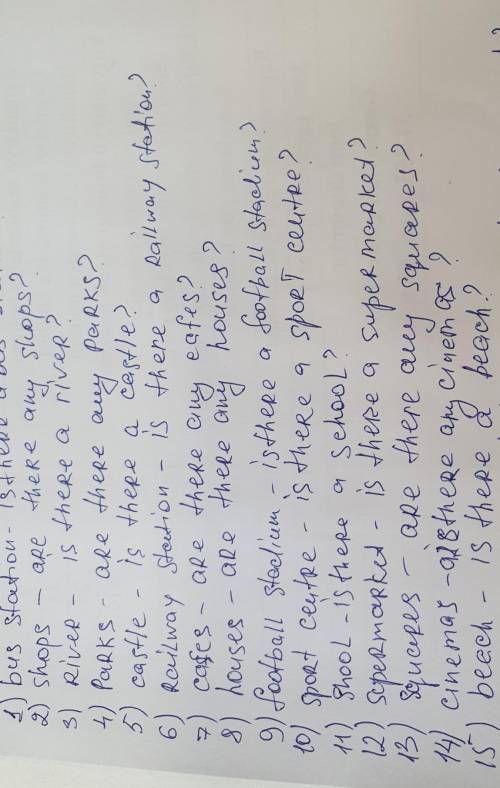 1) bus station - is there a bus
2) shops - are there any shops?
3) river - is there a river?
4) parks - are there any parks?
5) castle - is there a castle?
6) railway station - is there a railway station?
7) cafes - are there any cafes?
8) houses - are there any houses?
9) football stadium - is there a football stadium?
10) sport centre - is there a sport centre?
11) shool - is there a school?
12) supermarket - is there a supermarket?
13) squares - are there any squares?
14) cinemas - are there any cinemas?
15) beach - is there a beach?